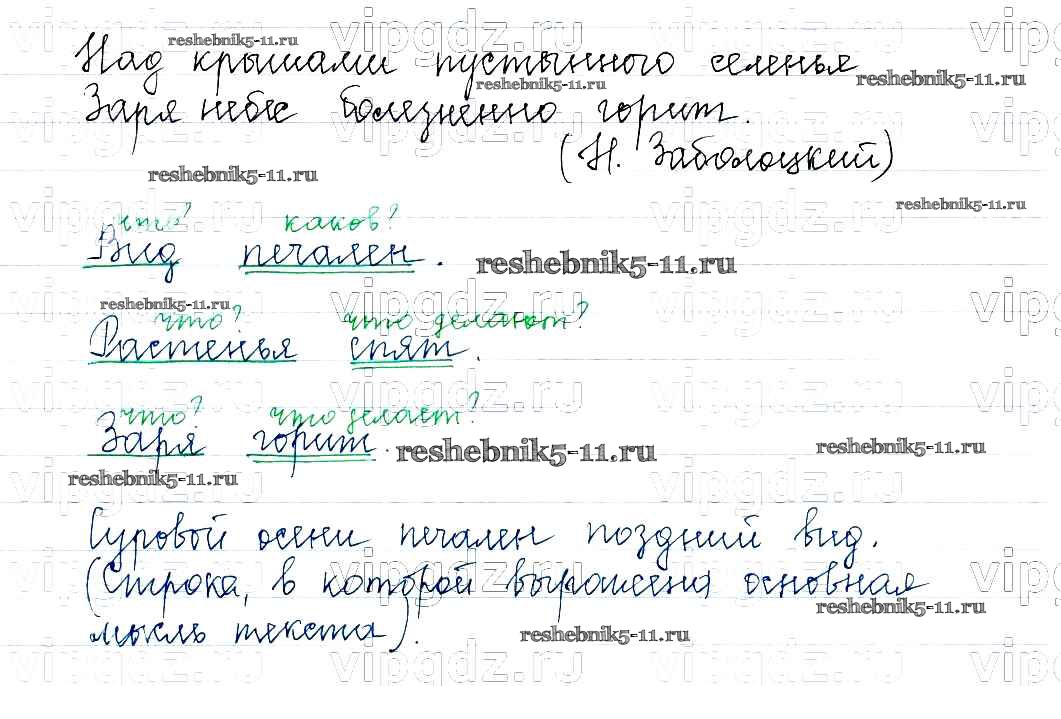 Над крышами пустынного селенья
Заря небес болезненно горит.
(Н. Заболоцкий)
что? каков?
Вид печален.
что? что делают?
Растенья спят.
что? что делает?
Заря горит.
Суровой осени печален поздний вид.
(Строка, в которой выражена основная
мысль текста).
reshebnik5-11.ru
vipgdz.ru